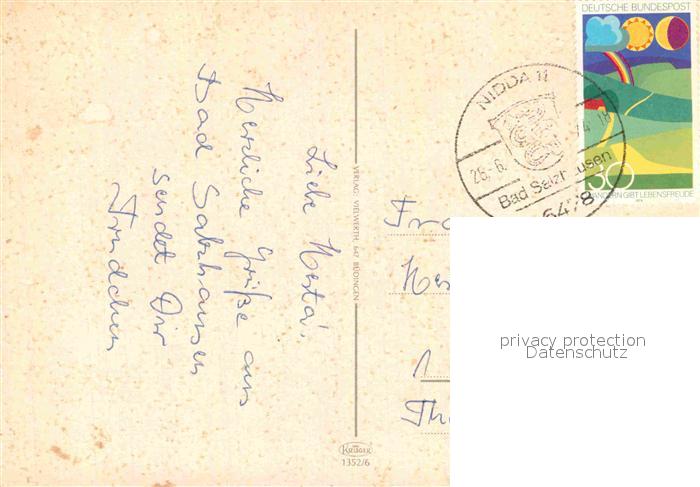 Liebe Herta!
Herzliche Grüße aus
Bad Salzhausen
sendet Dir
Trudchen
VERLAG: VIELWERTH, 647 BÜDINGEN
KRÜGER
1352/6
DEUTSCHE BUNDESPOST
30
WANDERN GIBT LEBENSFREUDE
NIDDA 11
26.-6. 74-18
Bad Salzhausen
6478
privacy protection
Datenschutz